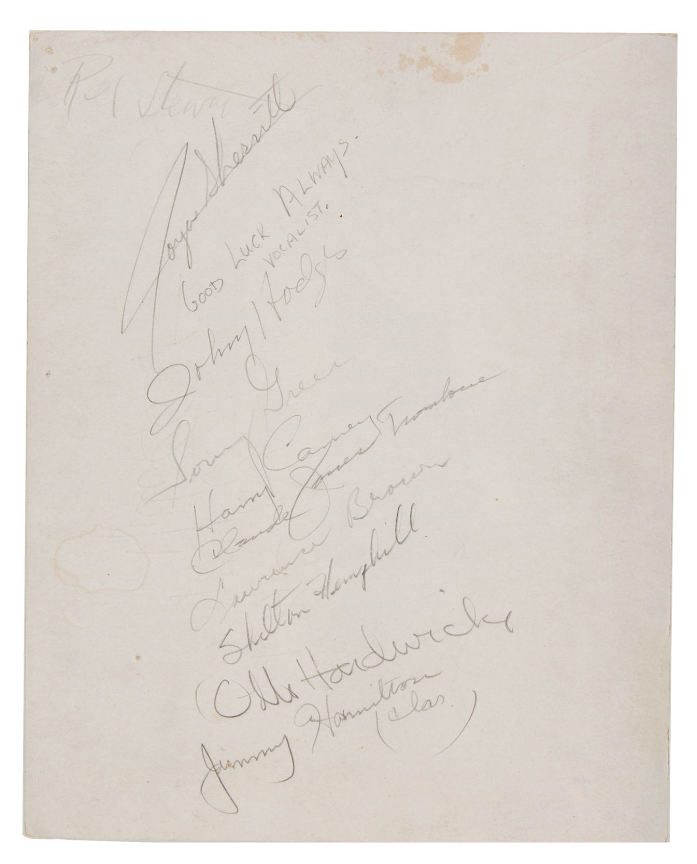 Rex Stewart
Joya Sherrill
GOOD LUCK ALWAYS.
VOCALIST.
Johnny Hodges
Sonny Greer
Harry Carney
Claude Jones Trombone
Lawrence Brown
Shelton Hemphill
Otto Hardwicke
Jimmy Hamilton
(Clar.)